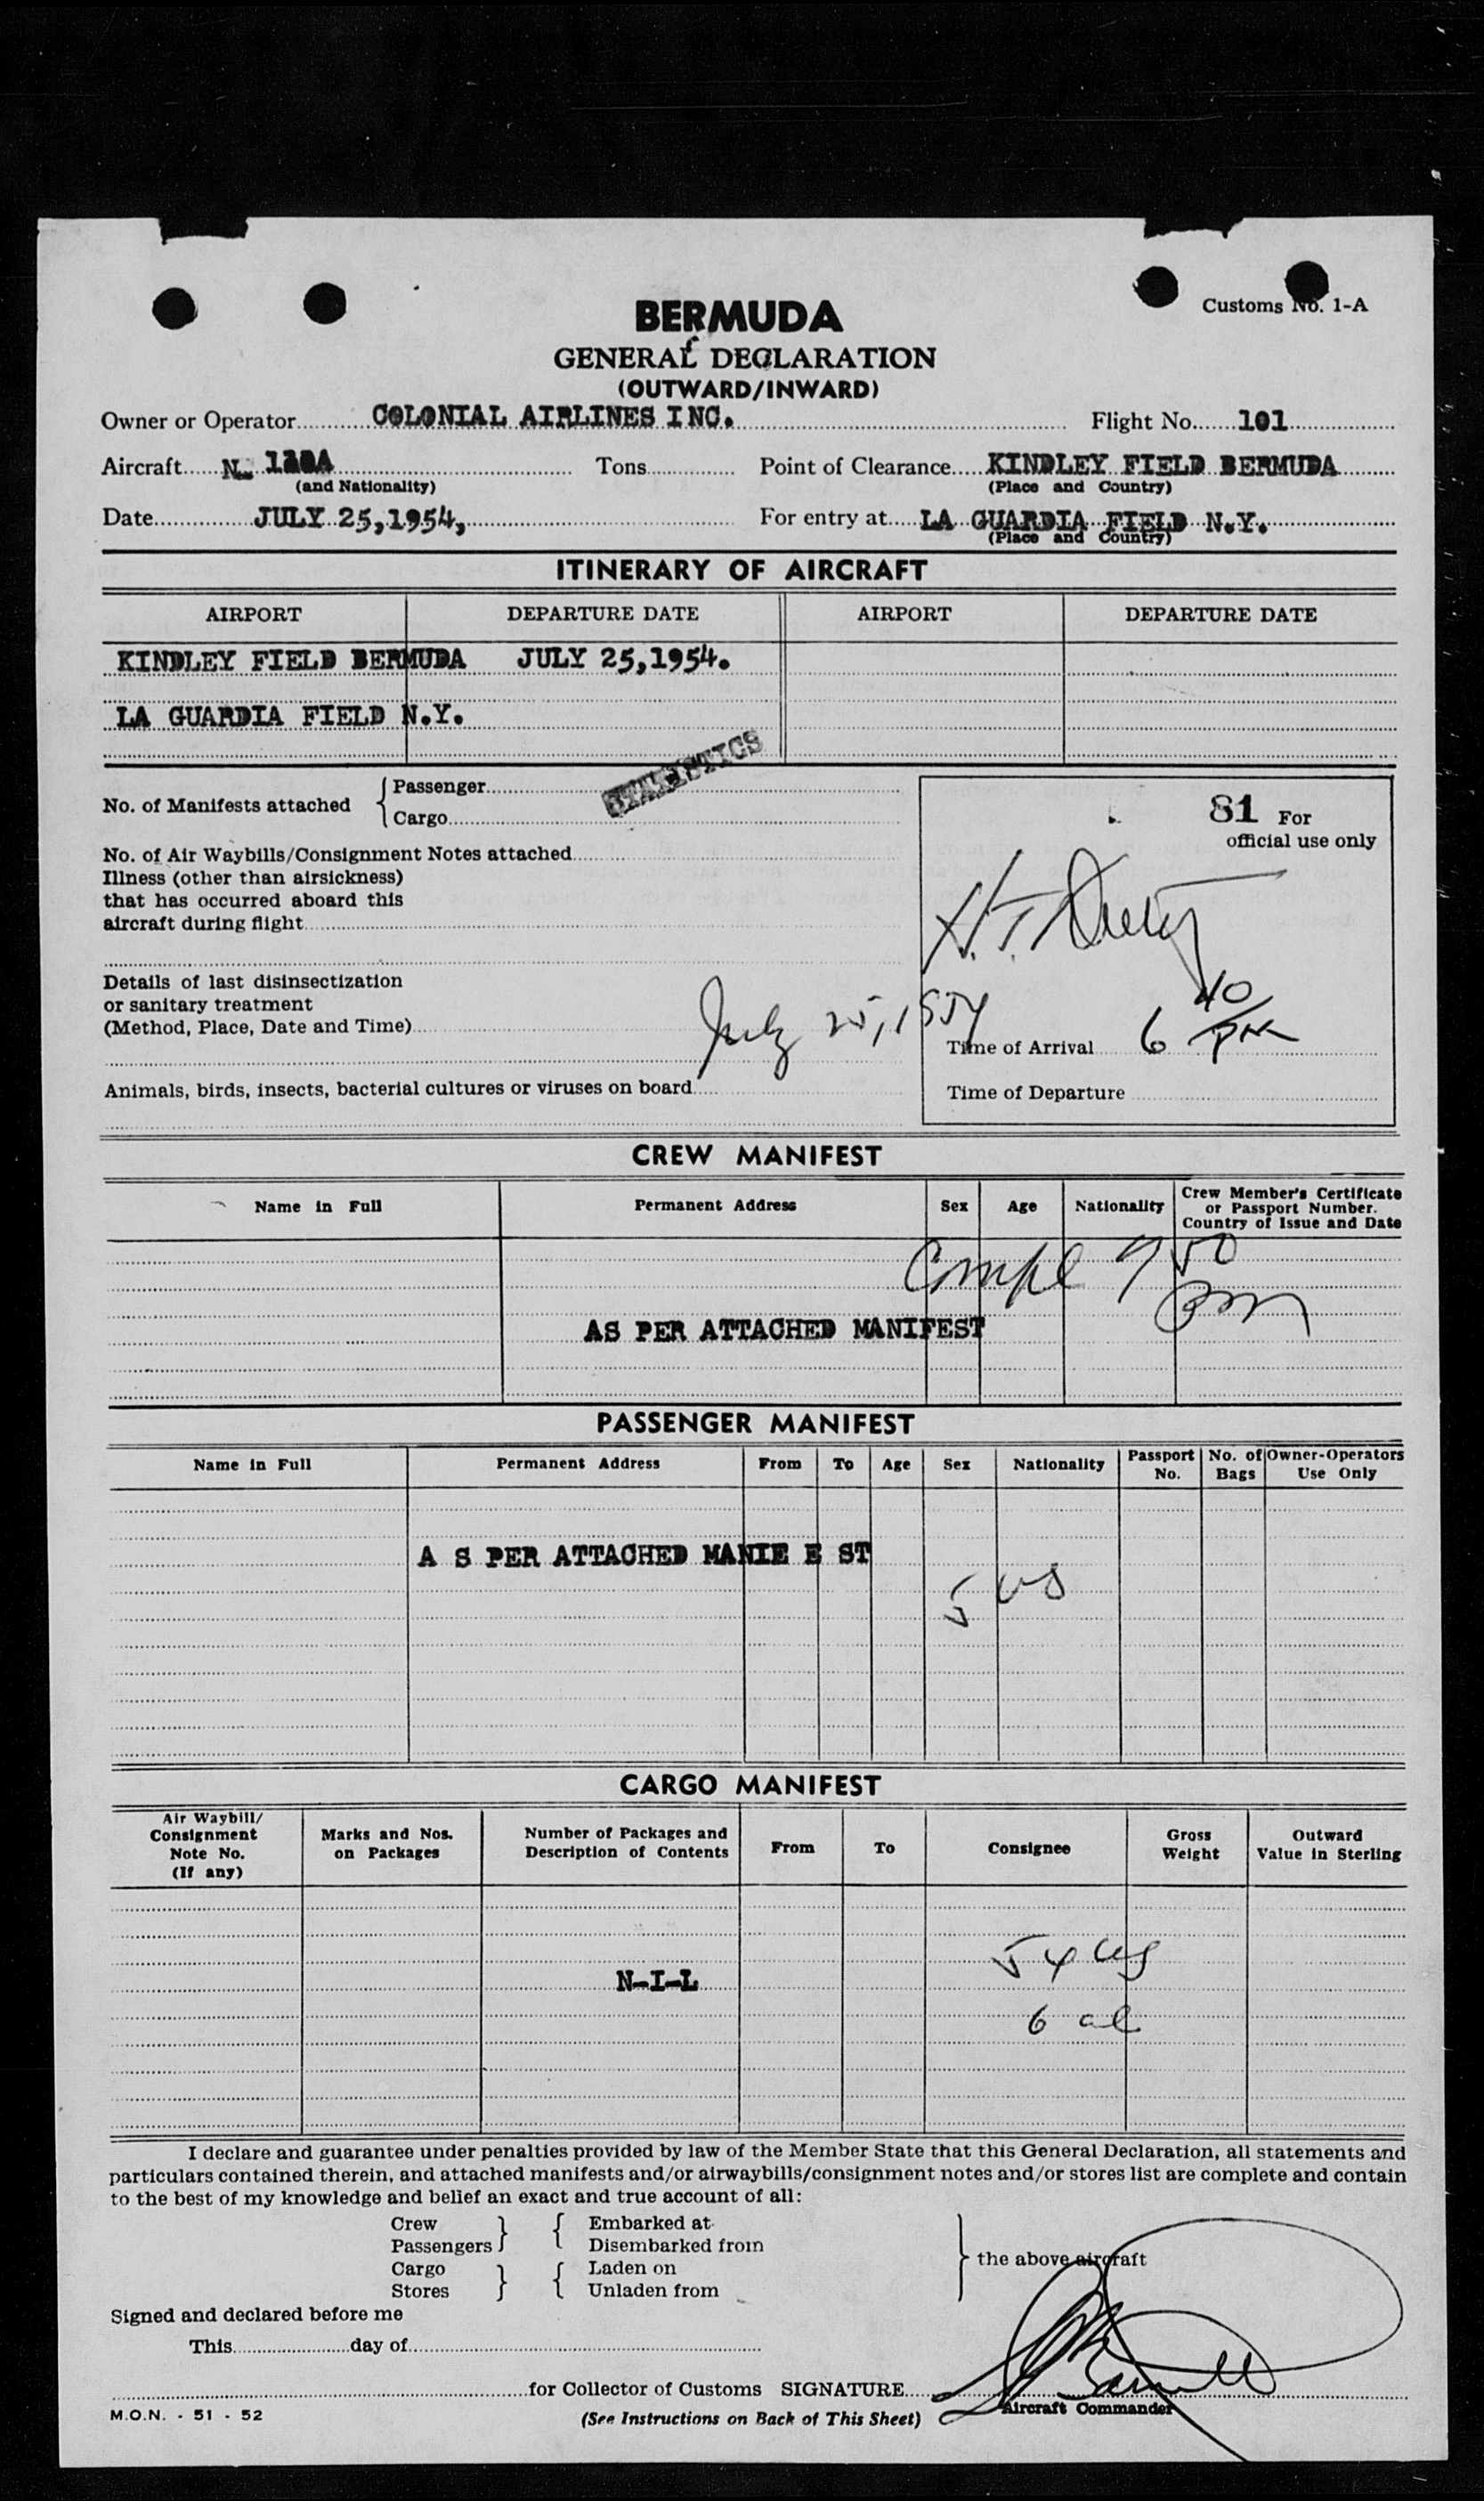 Customs No. 1-A
BERMUDA
GENERAL DECLARATION
(OUTWARD/INWARD)
Owner or Operator COLONIAL AIRLINES INC. Flight No. 101
Aircraft N. (and Nationality) Tons Point of Clearance KINDLEY FIELD BERMUDA (Place and Country)
Date JULY 25,1954, For entry at LA GUARDIA FIELD N.Y. (Place and Country)
ITINERARY OF AIRCRAFT
AIRPORT DEPARTURE DATE AIRPORT DEPARTURE DATE
KINDLEY FIELD BERMUDA JULY 25,1954.
LA GUARDIA FIELD N.Y.
STATISTICS
No. of Manifests attached Passenger
Cargo
81 For
official use only
No. of Air Waybills/Consignment Notes attached
Illness (other than airsickness)
that has occurred aboard this
aircraft during flight
H.T.
Details of last disinsectization
or sanitary treatment
(Method, Place, Date and Time)
July 25, 1954
Time of Arrival 6 40 PM
Animals, birds, insects, bacterial cultures or viruses on board
Time of Departure
CREW MANIFEST
Name in Full Permanent Address Sex Age Nationality Crew Member's Certificate or Passport Number. Country of Issue and Date
Compl 750 pm
AS PER ATTACHED MANIFEST
PASSENGER MANIFEST
Name in Full Permanent Address From To Age Sex Nationality Passport No. No. of Bags Owner-Operators Use Only
A S PER ATTACHED MANIE E ST
5 us
CARGO MANIFEST
Air Waybill/ Consignment Note No. (If any) Marks and Nos. on Packages Number of Packages and Description of Contents From To Consignee Gross Weight Outward Value in Sterling
54 us
N-I-L
6 al
I declare and guarantee under penalties provided by law of the Member State that this General Declaration, all statements and
particulars contained therein, and attached manifests and/or airwaybills/consignment notes and/or stores list are complete and contain
to the best of my knowledge and belief an exact and true account of all:
Crew Embarked at
Passengers Disembarked from
the above aircraft
Cargo Laden on
Stores Unladen from
Signed and declared before me
This day of
for Collector of Customs SIGNATURE
Aircraft Commander
M.O.N. - 51 - 52
(See Instructions on Back of This Sheet)